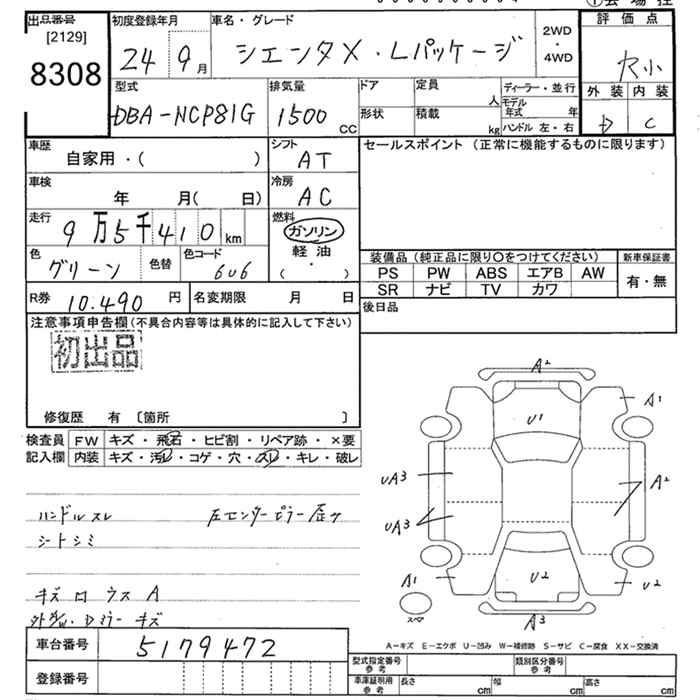 出品番号 初度登録年月 車名・グレード 2WD・4WD 評価点
[2129]
8308
24 9月 シエンタ X・Lパッケージ
型式 排気量 ドア 定員 人 ディーラー・並行 外装 内装
DBA-NCP81G 1500 CC 形状 積載 kg モデル年式 年 D C
ハンドル 左・右
車歴 自家用・( ) シフト AT セールスポイント (正常に機能するものに限ります)
車検 年 月( 日) 冷房 AC
走行 9万5千410km 燃料 ガソリン 軽油 ( ・ )
色 グリーン 色替 色コード 6U6
装備品(純正品に限り〇をつけてください) 新車保証書
PS PW ABS エアB AW 有・無
SR ナビ TV カワ
R券 10.490 円 名変期限 月 日 後日品
注意事項申告欄(不具合内容等は具体的に記入して下さい)
初出品
修復歴 有 〔箇所 〕
検査員 FW キズ・飛石・ヒビ割・リペア跡・×要
記入欄 内装 キズ・汚レ・コゲ・穴・スレ・キレ・破レ
ハンドルスレ 左センターピラー歪ツ
シートシミ
A2
U1
A1
UA3
A2
UA3
A1
U2
U2
スペア
A3
A-キズ E-エクボ U-凹み W-補修跡 S-サビ C-腐食 XX-交換済
車台番号 5179472
登録番号
型式指定番号 参考 類別区分番号 参考
車庫証明用 参考 長さ cm 幅 cm 高さ cm